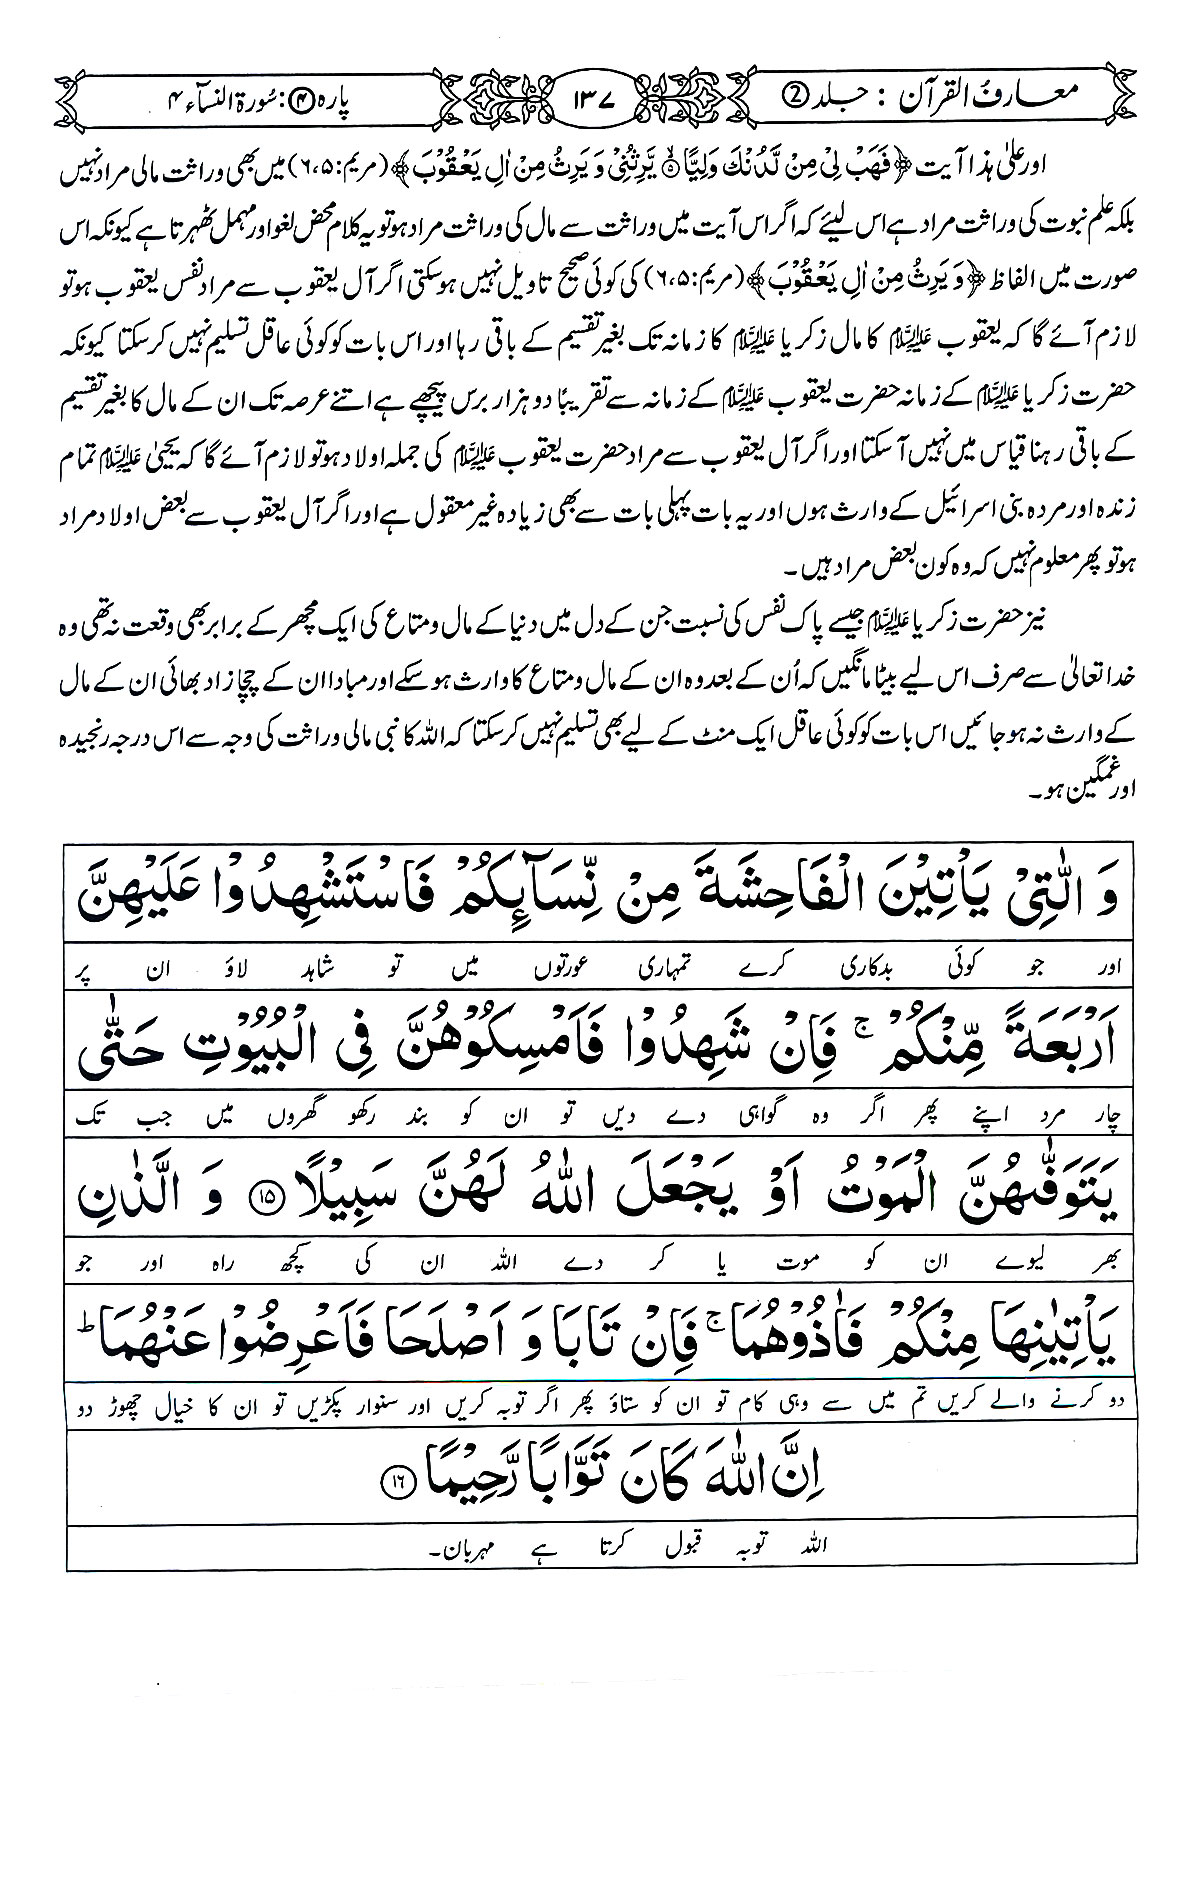 معارف القرآن : جلد ②
۱۳۷
پارہ ④: سُورۃ النسآء ۴
اور علیٰ ہذا آیت ﴿فَهَبْ لِیْ مِنْ لَّدُنْكَ وَلِیًّا۝ یَّرِثُنِیْ وَ یَرِثُ مِنْ اٰلِ یَعْقُوْبَ﴾ (مریم:۶،۵) میں بھی وراثت مالی مراد نہیں
بلکہ علم نبوت کی وراثت مراد ہے اس لیئے کہ اگر اس آیت میں وراثت سے مال کی وراثت مراد ہو تو یہ کلام محض لغو اور مہمل ٹھہرتا ہے کیونکہ اس
صورت میں الفاظ ﴿وَ یَرِثُ مِنْ اٰلِ یَعْقُوْبَ﴾ (مریم:۶،۵) کی کوئی صحیح تاویل نہیں ہو سکتی اگر آل یعقوب سے مراد نفس یعقوب ہو تو
لازم آئے گا کہ یعقوب علیہ السلام کا مال زکریا علیہ السلام کا زمانہ تک بغیر تقسیم کے باقی رہا اور اس بات کو کوئی عاقل تسلیم نہیں کر سکتا کیونکہ
حضرت زکریا علیہ السلام کے زمانہ حضرت یعقوب علیہ السلام کے زمانہ سے تقریبًا دو ہزار برس پیچھے ہے اتنے عرصہ تک ان کے مال کا بغیر تقسیم
کے باقی رہنا قیاس میں نہیں آ سکتا اور اگر آل یعقوب سے مراد حضرت یعقوب علیہ السلام کی جملہ اولاد ہو تو لازم آئے گا کہ یحییٰ علیہ السلام تمام
زندہ اور مردہ بنی اسرائیل کے وارث ہوں اور یہ بات پہلی بات سے بھی زیادہ غیر معقول ہے اور اگر آل یعقوب سے بعض اولاد مراد
ہو تو پھر معلوم نہیں کہ وہ کون بعض مراد ہیں۔
نیز حضرت زکریا علیہ السلام جیسے پاک نفس کی نسبت جن کے دل میں دنیا کے مال و متاع کی ایک مچھر کے برابر بھی وقعت نہ تھی وہ
خدا تعالیٰ سے صرف اس لیے بیٹا مانگیں کہ اُن کے بعد وہ ان کے مال و متاع کا وارث ہو سکے اور مبادا ان کے چچا زاد بھائی ان کے مال
کے وارث نہ ہو جائیں اس بات کو کوئی عاقل ایک منٹ کے لیے بھی تسلیم نہیں کر سکتا کہ اللہ کا نبی مالی وراثت کی وجہ سے اس درجہ رنجیدہ
اور غمگین ہو۔
وَ الّٰتِیْ یَاْتِیْنَ الْفَاحِشَةَ مِنْ نِّسَآىِٕكُمْ فَاسْتَشْهِدُوْا عَلَیْهِنَّ
اور جو کوئی بدکاری کرے تمہاری عورتوں میں تو شاہد لاؤ ان پر
اَرْبَعَةً مِّنْكُمْ ۚ فَاِنْ شَهِدُوْا فَاَمْسِكُوْهُنَّ فِی الْبُیُوْتِ حَتّٰى
چار مرد اپنے پھر اگر وہ گواہی دے دیں تو ان کو بند رکھو گھروں میں جب تک
یَتَوَفّٰىهُنَّ الْمَوْتُ اَوْ یَجْعَلَ اللّٰهُ لَهُنَّ سَبِیْلًا ⑮ وَ الَّذٰنِ
بھر لیوے ان کو موت یا کر دے اللہ ان کی کچھ راہ اور جو
یَاْتِیٰنِهَا مِنْكُمْ فَاٰذُوْهُمَا ۚ فَاِنْ تَابَا وَ اَصْلَحَا فَاَعْرِضُوْا عَنْهُمَا ؕ
دو کرنے والے کریں تم میں سے وہی کام تو ان کو ستاؤ پھر اگر توبہ کریں اور سنوار پکڑیں تو ان کا خیال چھوڑ دو
اِنَّ اللّٰهَ كَانَ تَوَّابًا رَّحِیْمًا ⑯
اللہ توبہ قبول کرتا ہے مہربان۔